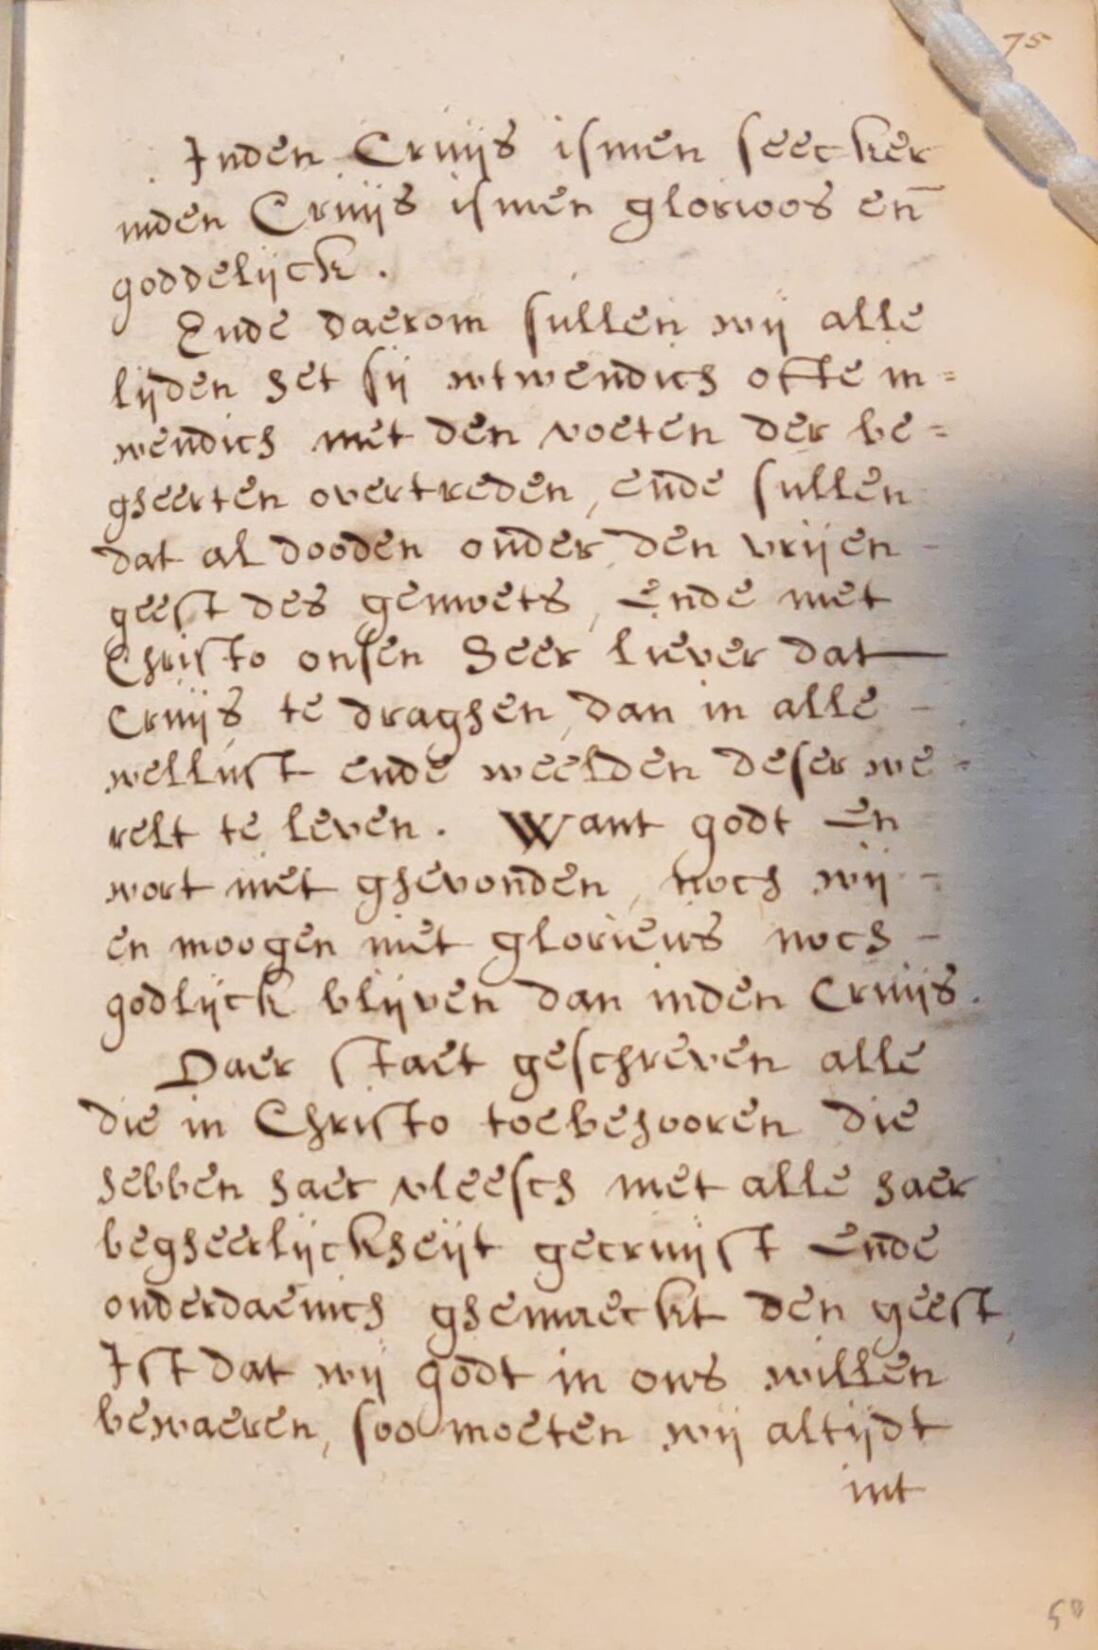 75
Inden Cruijs ismen seecker
inden Cruijs ismen glorioos en̄
goddelijck.
Ende daerom sullen wij alle
lijden het sij wtwendich ofte in=
wendich met den voeten der be=
gheerten overtreden, ende sullen
dat al dooden onder den vrijen -
geest des gemoets, ende met
Christo onsen Heer liever dat
Cruijs te draghen, dan in alle -
wellust ende weelden deser we=
relt te leven. Want godt en
wort niet ghevonden, noch wij -
en moogen niet glorieus noch -
godlijck blijven dan inden Cruijs.
Daer staet geschreven alle
die in Christo toebehooren die
hebben haer vleesch met alle haer
begheerlijckheijt gecruijst ende
onderdaenich ghemaeckt den geest,
Ist dat wij godt in ons willen
bewaeren, soo moeten wij altijdt
int